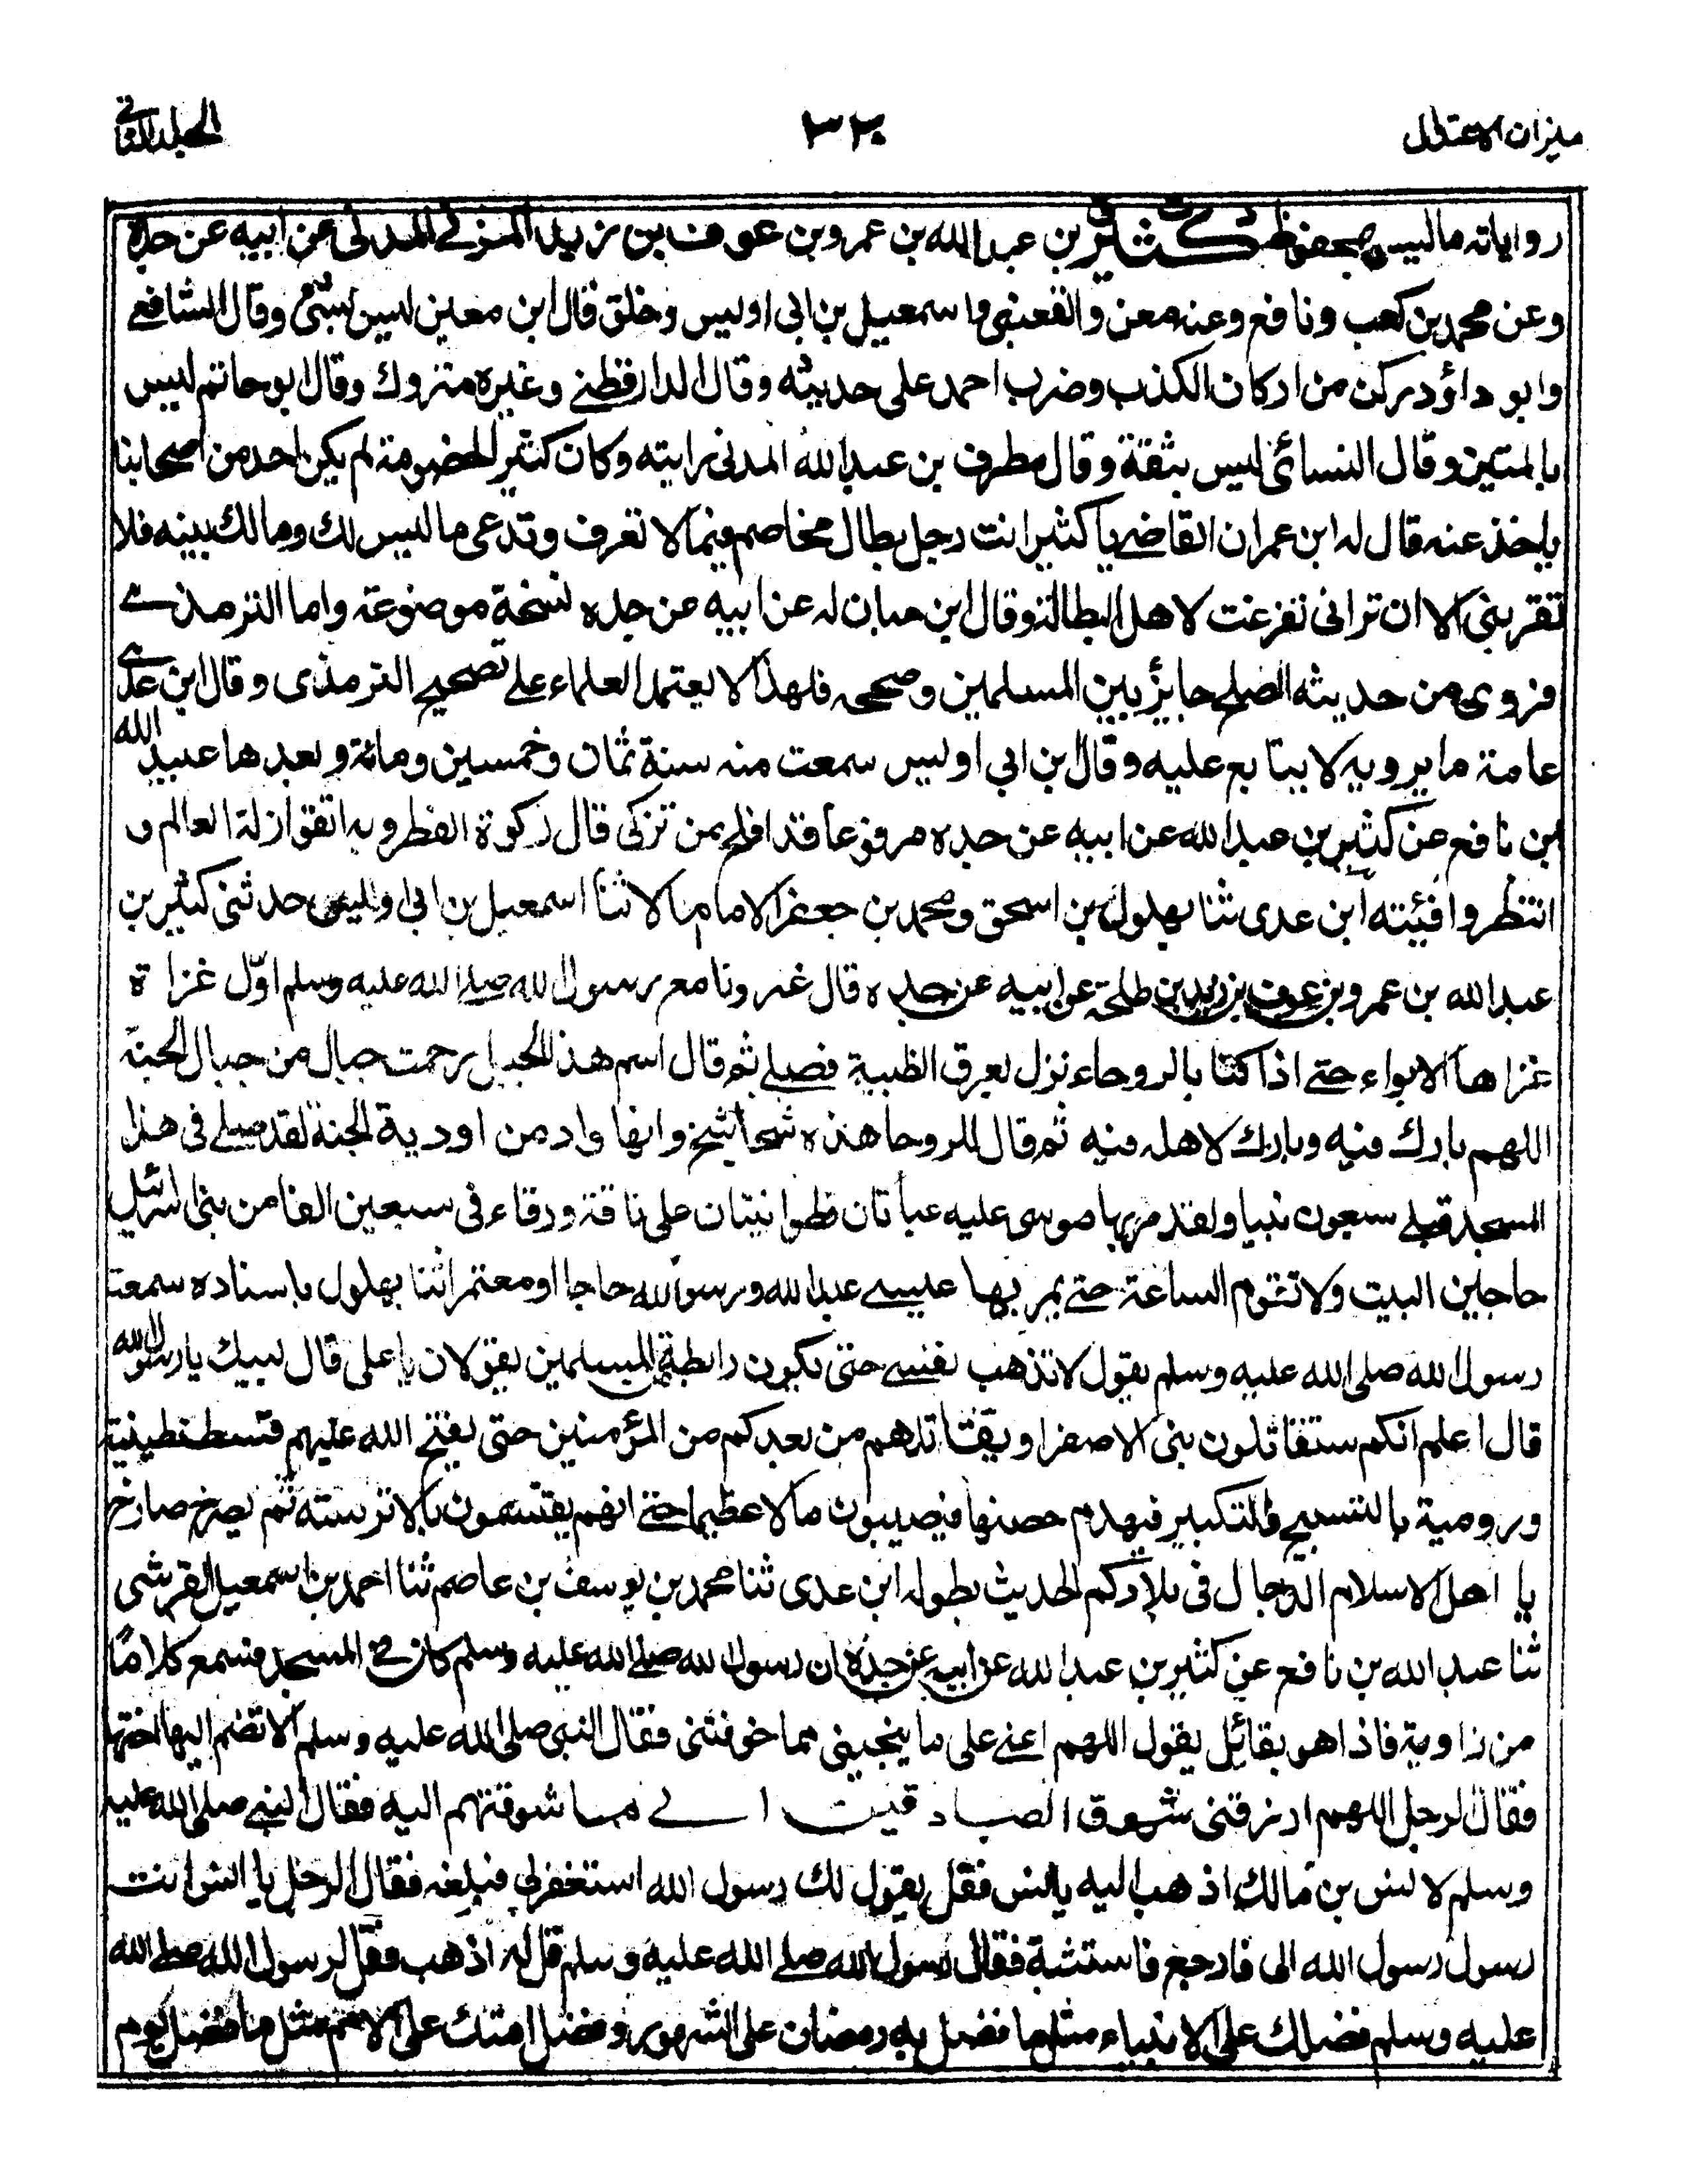 ميزان الاعتدال
٣٢٠
الجلد الثاني
رواياته ما ليس بمحفوظ كثير بن عبد الله بن عمرو بن عوف بن زيد المزني المدني عن ابيه عن جده
وعن محمد بن كعب ونافع وعنه معن والقعنبي واسمعيل بن ابي اويس وخلق قال ابن معين ليس بشئ وقال الشافعي
وابو داؤد ركن من اركان الكذب وضرب احمد على حديثه وقال الدارقطني وغيره متروك وقال ابو حاتم ليس
بالمتين وقال النسائي ليس بثقة وقال مطرف بن عبد الله المدني رايته وكان كثير الخصومة لم يكن احد من اصحابنا
ياخذ عنه قال له ابن عمران القاضي يا كثير انت رجل بطال مخاصم فيما لا تعرف وتدعى ما ليس لك ومالك بينه فلا
تقربني الا ان تراني تفرغت لاهل البطالة وقال ابن حبان له عن ابيه عن جده نسخة موضوعة واما الترمذي
فروى من حديثه الصلح جايز بين المسلمين وصححه فلهذا لا يعتمد العلماء على تصحيح الترمذى وقال ابن عدي
عامة ما يرويه لا يتابع عليه وقال بن ابي اويس سمعت منه سنة ثمان وخمسين ومائة وبعدها عبيد الله
ابن نافع عن كثير بن عبد الله عن ابيه عن جده مرفوعا قد افلح من تزكى قال زكوة الفطر وبه اتقوا زلة العالم و
انتظروا فيئته ابن عدى ثنا بهلول بن اسحق ومحمد بن جعفر الامام قالا ثنا اسمعيل بن ابي اويس حدثنى كثير بن
عبد الله بن عمرو بن عوف بن زيد بن طلحة عن ابيه عن جده قال غزونا مع رسول الله صلى الله عليه وسلم اول غزاة
غزاها الابواء حتى اذا كنا بالروحاء نزل بعرق الظبية فصلى ثم قال اسم هذا الجبل رحمت جبال من جبال الجنة
اللهم بارك فيه وبارك لاهله فيه ثم قال للروحا هذه وانها واد من اودية الجنة لقد صلى في هذا
المسجد قبلي سبعون نبيا ولقد مر بها موسى عليه عباتان قطوانيتان على ناقة ورقاء في سبعين الفا من بنى اسرائيل
حاجين البيت ولا تقوم الساعة حتى يمر بها عيسى عبد الله ورسول الله حاجا او معتمرا ثنا بهلول باسناده سمعت
رسول الله صلى الله عليه وسلم يقول لا تذهب نفسي حتى تكون رابطة المسلمين يا على قال لبيك يا رسول الله
قال اعلم انكم ستقاتلون بنى الاصفر او يقاتلهم من بعدكم من المؤمنين حتى يفتح الله عليهم قسطنطينية
ورومية بالتسبيح والتكبير فيهدم حصنها فيصيبون مالا عظيما حتى انهم يقتسمون بالاترسته ثم يصرخ صارخ
يا اهل الاسلام الدجال في بلادكم الحديث بطوله ابن عدى ثنا محمد بن يوسف بن عاصم ثنا احمد بن اسمعيل القرشي
ثنا عبد الله بن نافع عن كثير بن عبد الله عن ابيه عن جده ان رسول الله صلى الله عليه وسلم كان في المسجد فسمع كلاما
من زاوية فاذا هو بقائل يقول اللهم اعنى على ما ينجيني مما خوفتنى فقال النبي صلى الله عليه وسلم الا تضم اليها اختها
فقال الرجل اللهم ارزقنى شوق الصادقين الى ما شوقتهم اليه فقال النبي صلى الله عليه
وسلم لانس بن مالك اذهب اليه يا انس فقل يقول لك رسول الله استغفر لي فبلغه فقال الرجل يا انس انت
رسول رسول الله الى فارجع فاستثبة فقال رسول الله صلى الله عليه وسلم قل له اذهب فقل لرسول الله صلى الله
عليه وسلم فضلك على الانبياء مثل ما فضل به رمضان على الشهور وفضل امتك على الامم مثل ما فضل يوم